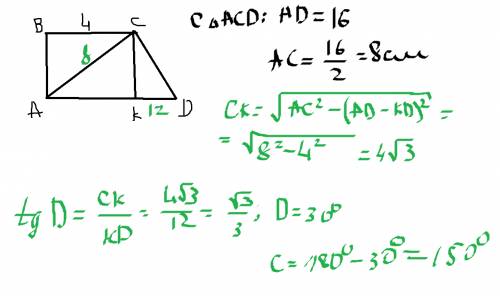 B 4 C
8
A K 12 D
C△ACD: AD=16
AC= 16/2 =8см
CK= √(AC²-(AD-KD)²) =
= √(8²-4²) =4√3
tg D= CK/KD = 4√3/12 = √3/3; D=30°
C=180°-30°=150°